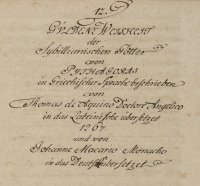 12.
GÜLDENE WEISHEIT
der
Sÿbillinischen Götter
von
PYTHAGORAS
in Griechischer Sprache beschrieben
von
Thomas de Aquino Doctore Angelico
in das Lateinische übersetzet
1267
und von
Johanne Macario Monacho
in das Deutsch übersetzet